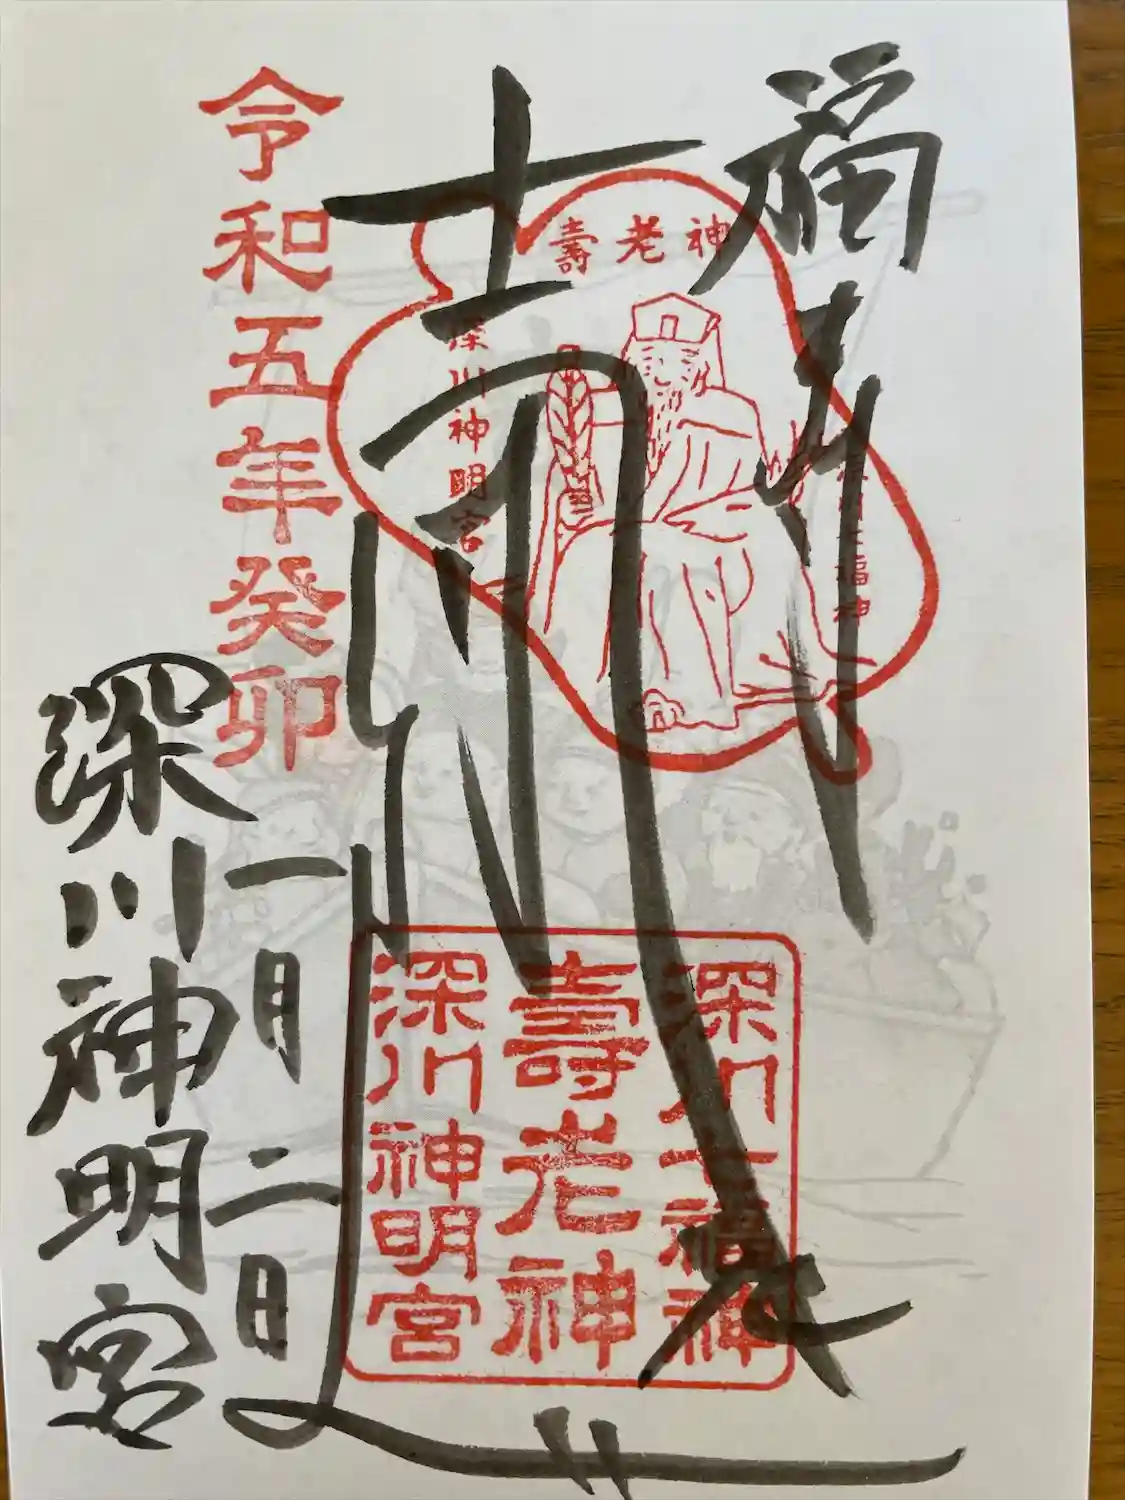 福
壽老神
深川七福神
深川神明宮
深川七福神
壽老神
深川神明宮
令和五年癸卯
一月二日
深川神明宮